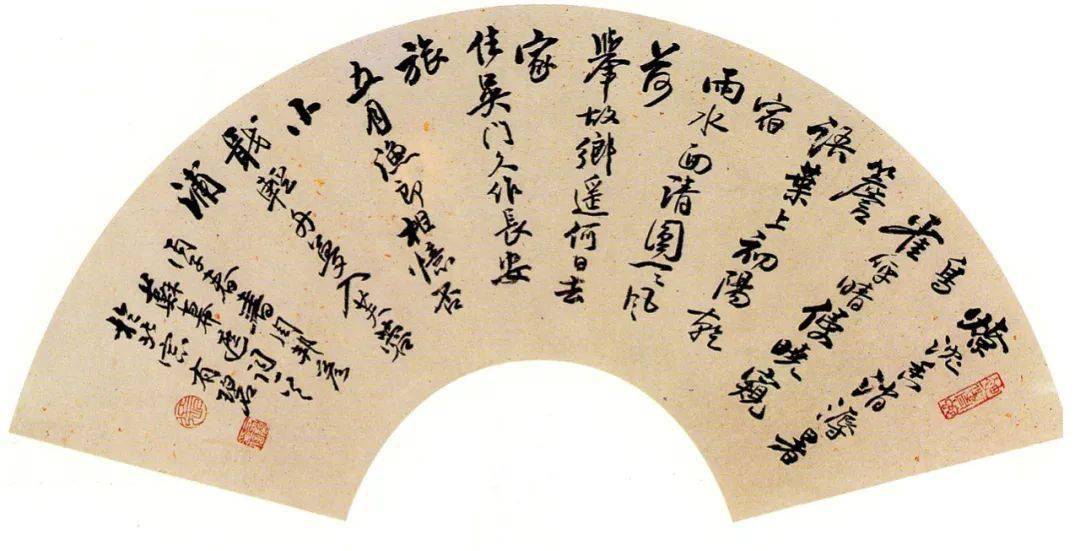 燎沈香消溽暑
鳥
雀呼晴侵曉窺
簷
語葉上初陽乾
宿
雨水面清圓一一風
荷
舉故鄉遥何日去
家
住吳門久作長安
旅
五月漁郎相憶否
小
檝輕舟夢入芙蓉
浦
書周邦彦
蘇幕遮詞
於北京